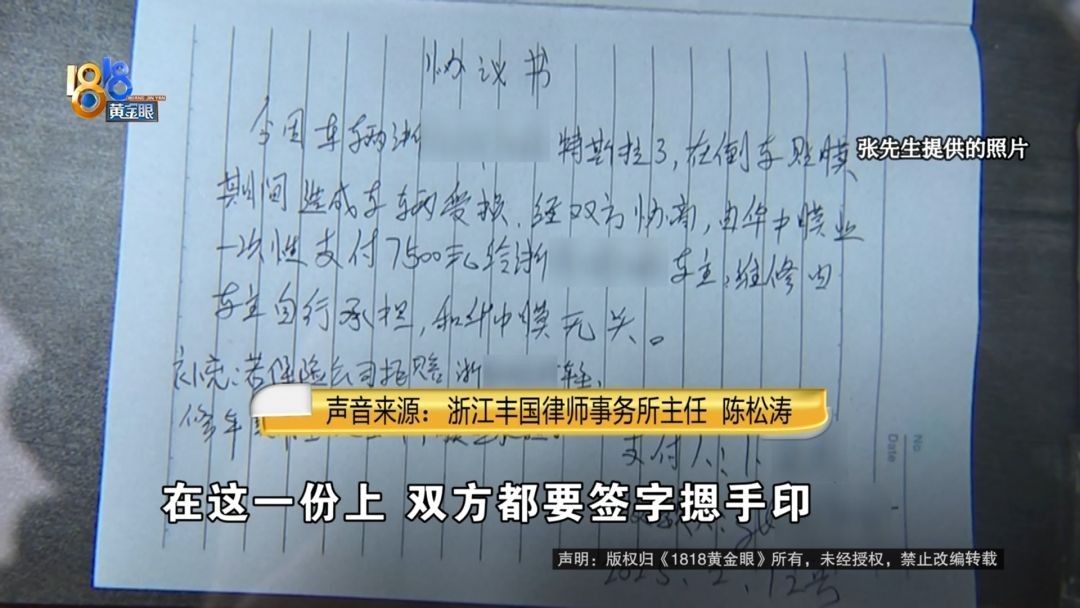 1818
HUANG JIN YAN
黄金眼
协议书
今因车辆浙 特斯拉3,在倒车贴膜
张先生提供的照片
期间造成车辆受损.经双方协商,由华中膜业
一次性支付7500元给浙 车主,维修由
车主自行承担,和华中膜无关。
补充:若保险公司拒赔浙 车主,
修车
声音来源:浙江丰国律师事务所主任 陈松涛
支付人:
No
Date
在这一份上 双方都要签字摁手印
声明:版权归《1818黄金眼》所有,未经授权,禁止改编转载
2025.2.12号